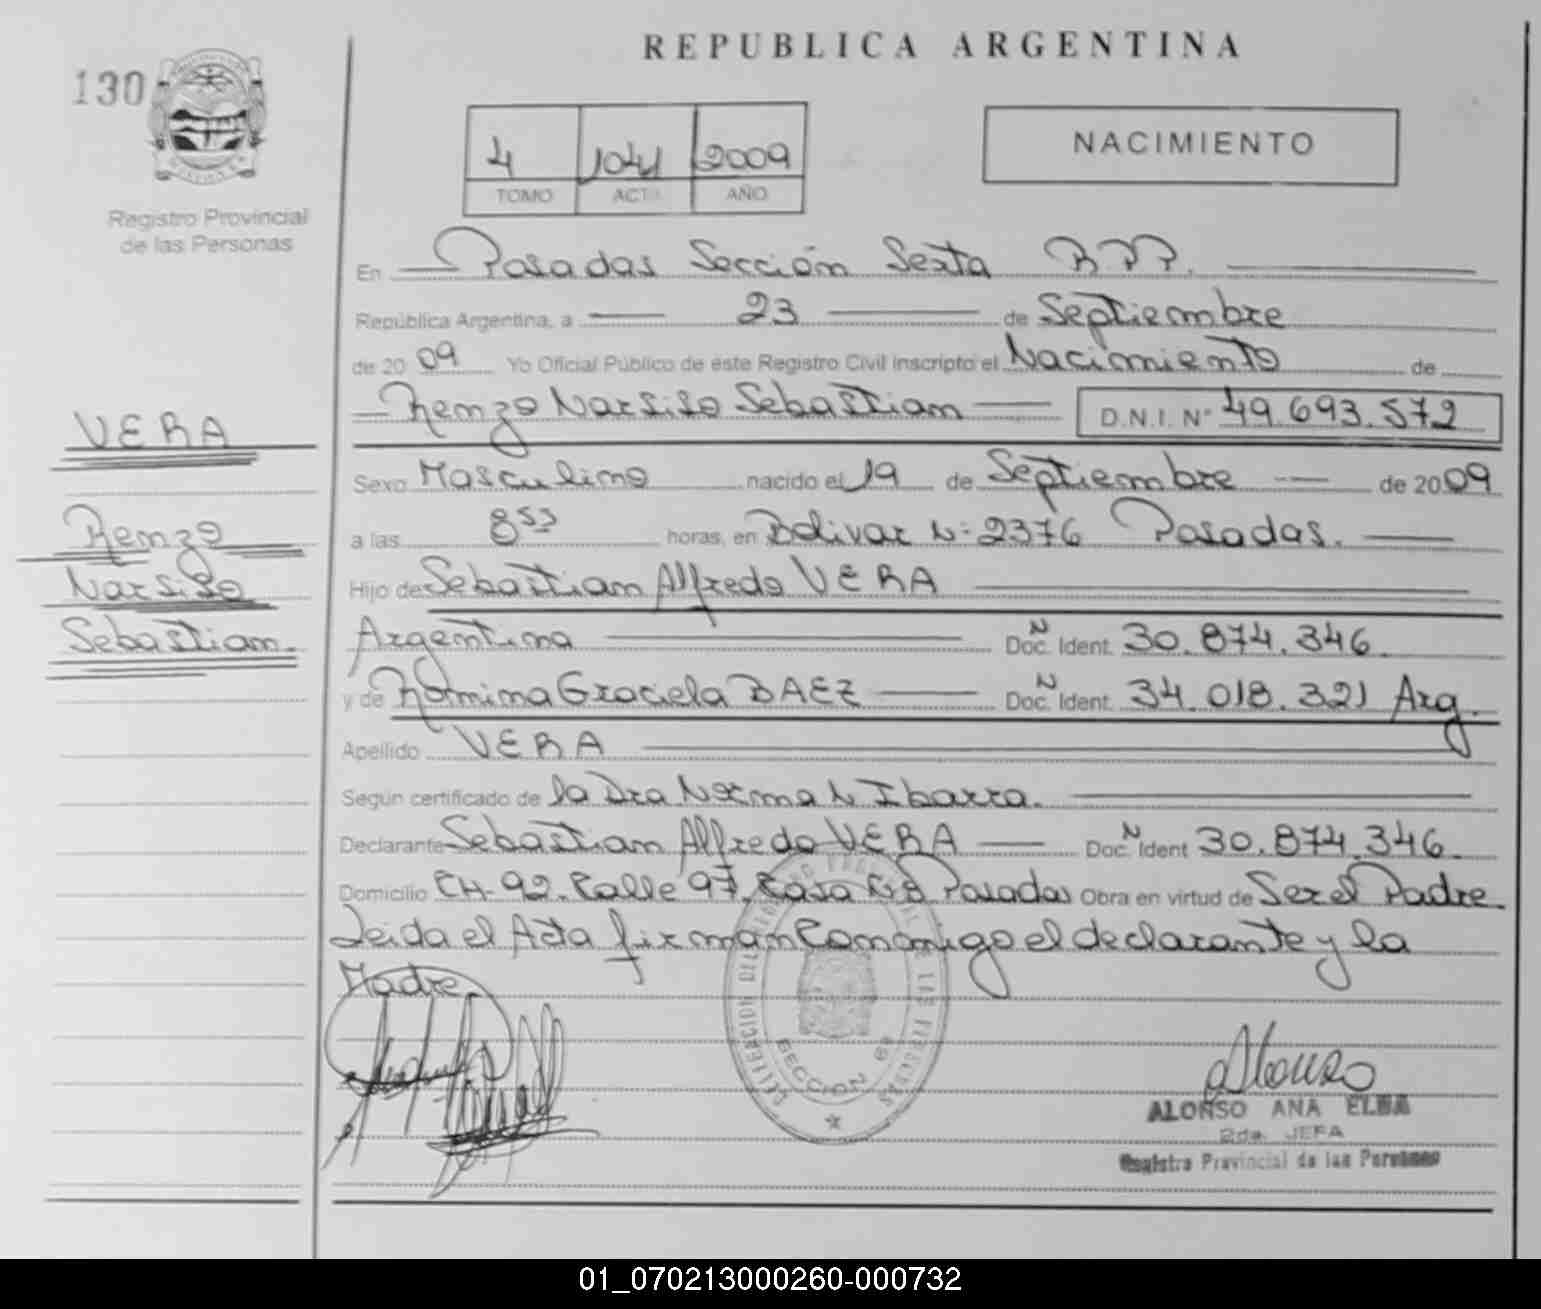 REPUBLICA ARGENTINA
130
4 1041 2009
TOMO ACTA AÑO
NACIMIENTO
Registro Provincial
de las Personas
En Posadas Sección Sexta R.P.P.
República Argentina, a 23 de Septiembre
de 2009 Yo Oficial Público de éste Registro Civil Inscripto el Nacimiento de
Renzo Narsiso Sebastian D.N.I. Nº 49.693.572
VERA
Sexo Masculino nacido el 19 de Septiembre de 2009
Renzo
a las 8 horas, en Bolivar Nº 2376 Posadas.
Narsiso
Hijo de Sebastian Alfredo VERA
Sebastian.
Argentina Doc. Ident. Nº 30.874.346.
y de Romina Graciela BAEZ Doc. Ident. Nº 34.018.321 Arg.
Apellido VERA
Según certificado de la Dra Norma N Ibarra.
Declarante Sebastian Alfredo VERA Doc. Ident Nº 30.874.346.
Domicilio CH-92. Calle 97, Casa Posadas Obra en virtud de Ser el Padre
Leida el Acta firman Conmigo el declarante y la
Madre.
DELEGACION DEL REGISTRO PROVINCIAL DE LAS PERSONAS
SECCION 6ª
Alonso
ALONSO ANA ELBA
2da. JEFA
Registro Provincial de las Personas
01_070213000260-000732